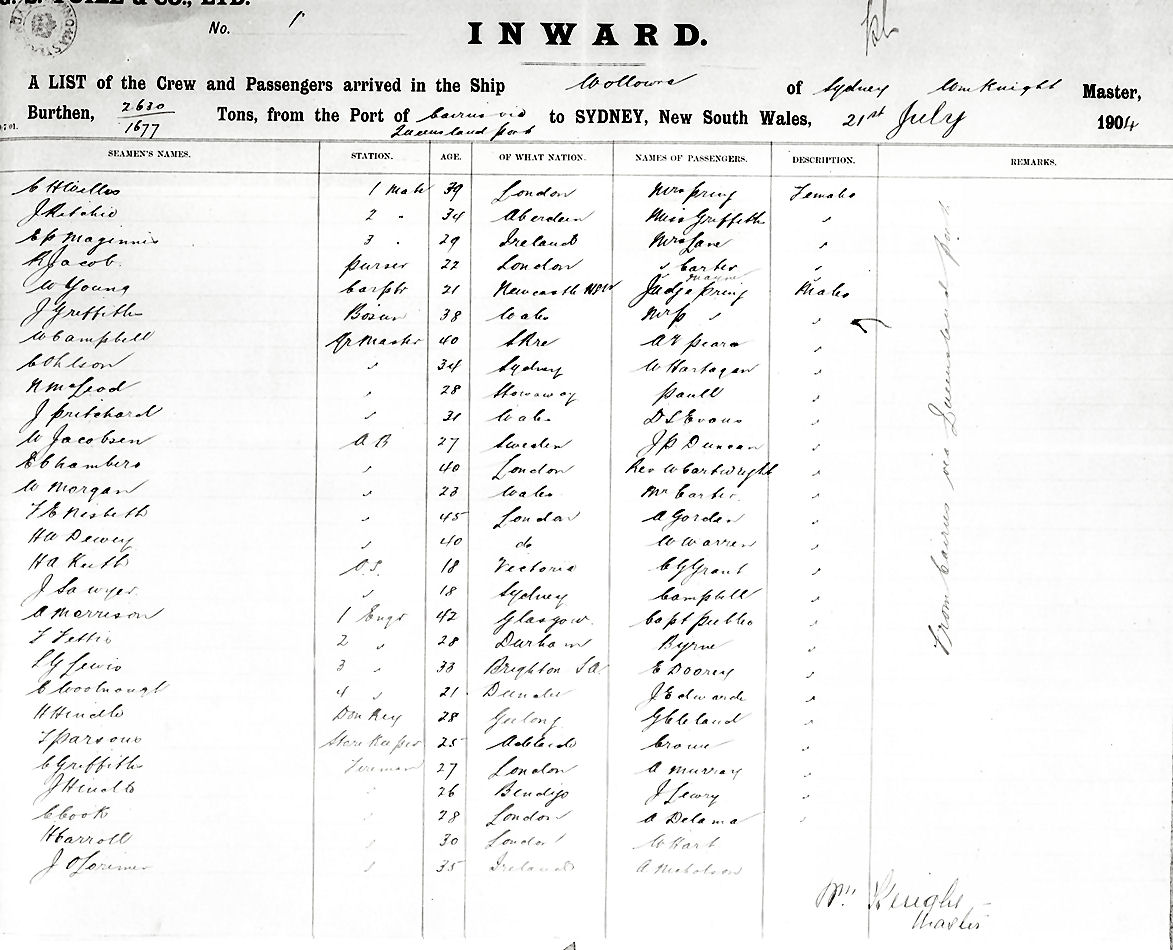 G. S. YUILL & CO., LTD.
No. 1
INWARD.
A LIST of the Crew and Passengers arrived in the Ship Wollowra of Sydney Wm Knight Master,
Burthen, 2630/1677 Tons, from the Port of Cairns via Queensland Ports to SYDNEY, New South Wales, 21st July 1904
SEAMEN'S NAMES. STATION. AGE. OF WHAT NATION. NAMES OF PASSENGERS. DESCRIPTION. REMARKS.
C H Welles 1 Mate 39 London Mrs Pring Female
J Ritchie 2 " 34 Aberdeen Miss Griffith "
E P Maginnis 3 " 29 Ireland Mrs Lane "
R Jacob. Purser 22 London " Carter "
W Young Carptr 21 Newcastle NSW Judge Pring Male
J Griffiths Bosun 38 Wales "
W Campbell Qr Master 40 A T Pears "
C Ohlson " 34 Sydney W Hartagan "
N McLeod " 28 Paull "
J Pritchard " 31 Wales D L Evans "
W Jacobsen A B 27 Sweden J P Duncan "
E Chambers " 40 London Rev W Cartwright "
W Morgan " 23 Wales Mr Carter "
T E Nisbeth " 45 London A Gordon "
H W Dewey " 40 do W Warren "
H A Keith O.S. 18 Victoria C G Grant "
J Sawyer " 18 Sydney Campbell "
A Morrison 1 Engr 42 Glasgow Capt Publie "
T Tettis 2 " 28 Durham Byrne "
L G Lewis 3 " 33 Brighton S A E Doorey "
C Woolnough 4 " 21 Dundee J Edwards "
H Hindle Donkey 28 Geelong G Cleland "
T Parsons Storekeeper 25 Adelaide Crowe "
C Griffiths Fireman 27 London A Murray "
J Hindle " 26 Bendigo J Lewry "
C Cook " 28 London A Delama "
H Carroll " 30 London W Hart
J O Lorimer " 35 Ireland A Nicholson
From Cairns via Queensland Ports
Wm Knight
Master